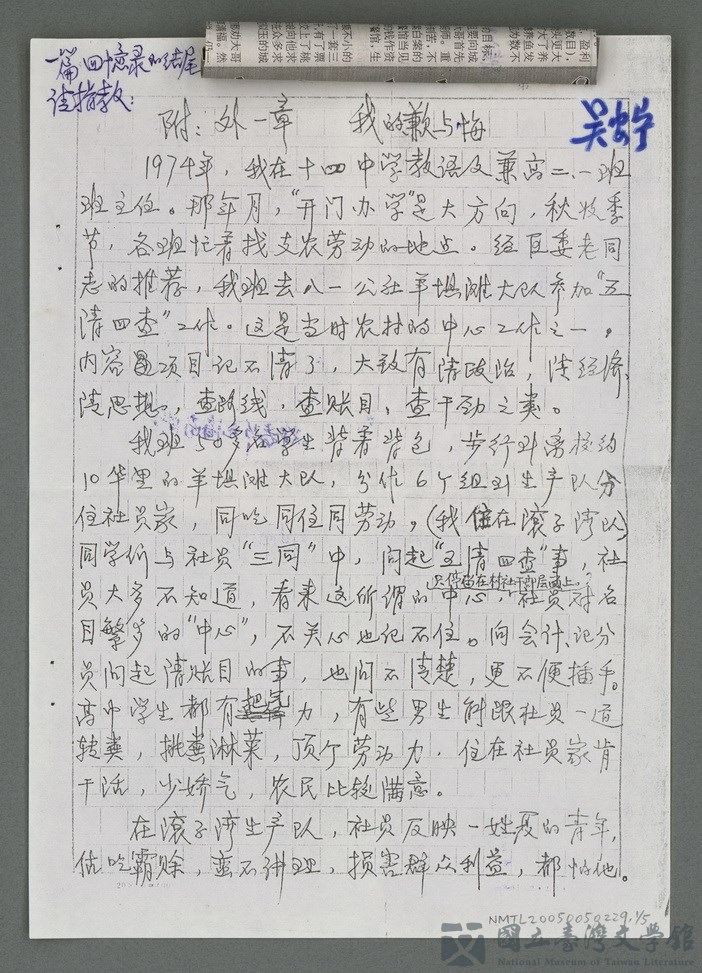 一篇回憶录的结尾
请指教：
附：外一章　　我的歉与悔
1974年，我在十四中学教语文兼高二.一班
班主任。那年月，“开门办学”是大方向，秋收季
节，各班忙着找支农劳动的地点。经区委老同
志的推荐，我班去八一公社羊垻滩大队参加“五
清四查”工作。这是当时农村的中心工作之一，
内容项目记不清了，大致有清政治，清经济，
清思想，查路线，查账目，查干劲之类。
我班50多名学生背着背包，步行到离校约
10华里的羊垻滩大队，分作6个组到生产队分
住社员家，同吃同住同劳动，(我住在滚子湾队)
同学们与社员“三同”中，问起“五清四查”事，社
只停留在村社干部层面上。
员大多不知道，看来这所谓的“中心”，社员对名
目繁多的“中心”，不关心也记不住。向会计、记分
员问起清账目的事，也问不清楚，更不便插手。
高中学生都有力，有些男生能跟社员一道
转粪，挑粪淋菜，顶个劳动力，住在社员家肯
干活，少娇气，农民比较满意。
在滚子湾生产队，社员反映一姓夏的青年，
估吃霸赊，蛮不讲理，损害群众利益，都怕他。
NMTL20050050229.1/5
國立臺灣文學館
National Museum of Taiwan Literature